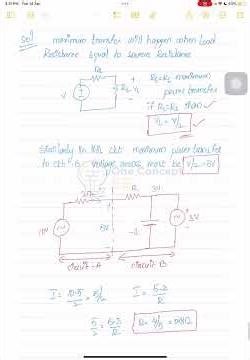 Soln
maximum transfer will happen when Load
Resistance Equal to source Resistance
Rs
V
RL VL
RL=Rs maximum
power transfer
if RL=Rs then
VL = V/2
Similarly in this ckt maximum power transfer
to ckt B voltage across must be V/2 = 5V
One Concept
2Ω
R
3V
10V
5V
3V
circuit-A
circuit B
I = 10-5/2 = 5/2
I = 5-3/R
5/2 = 5-3/R
R = 4/5 = 0.8Ω